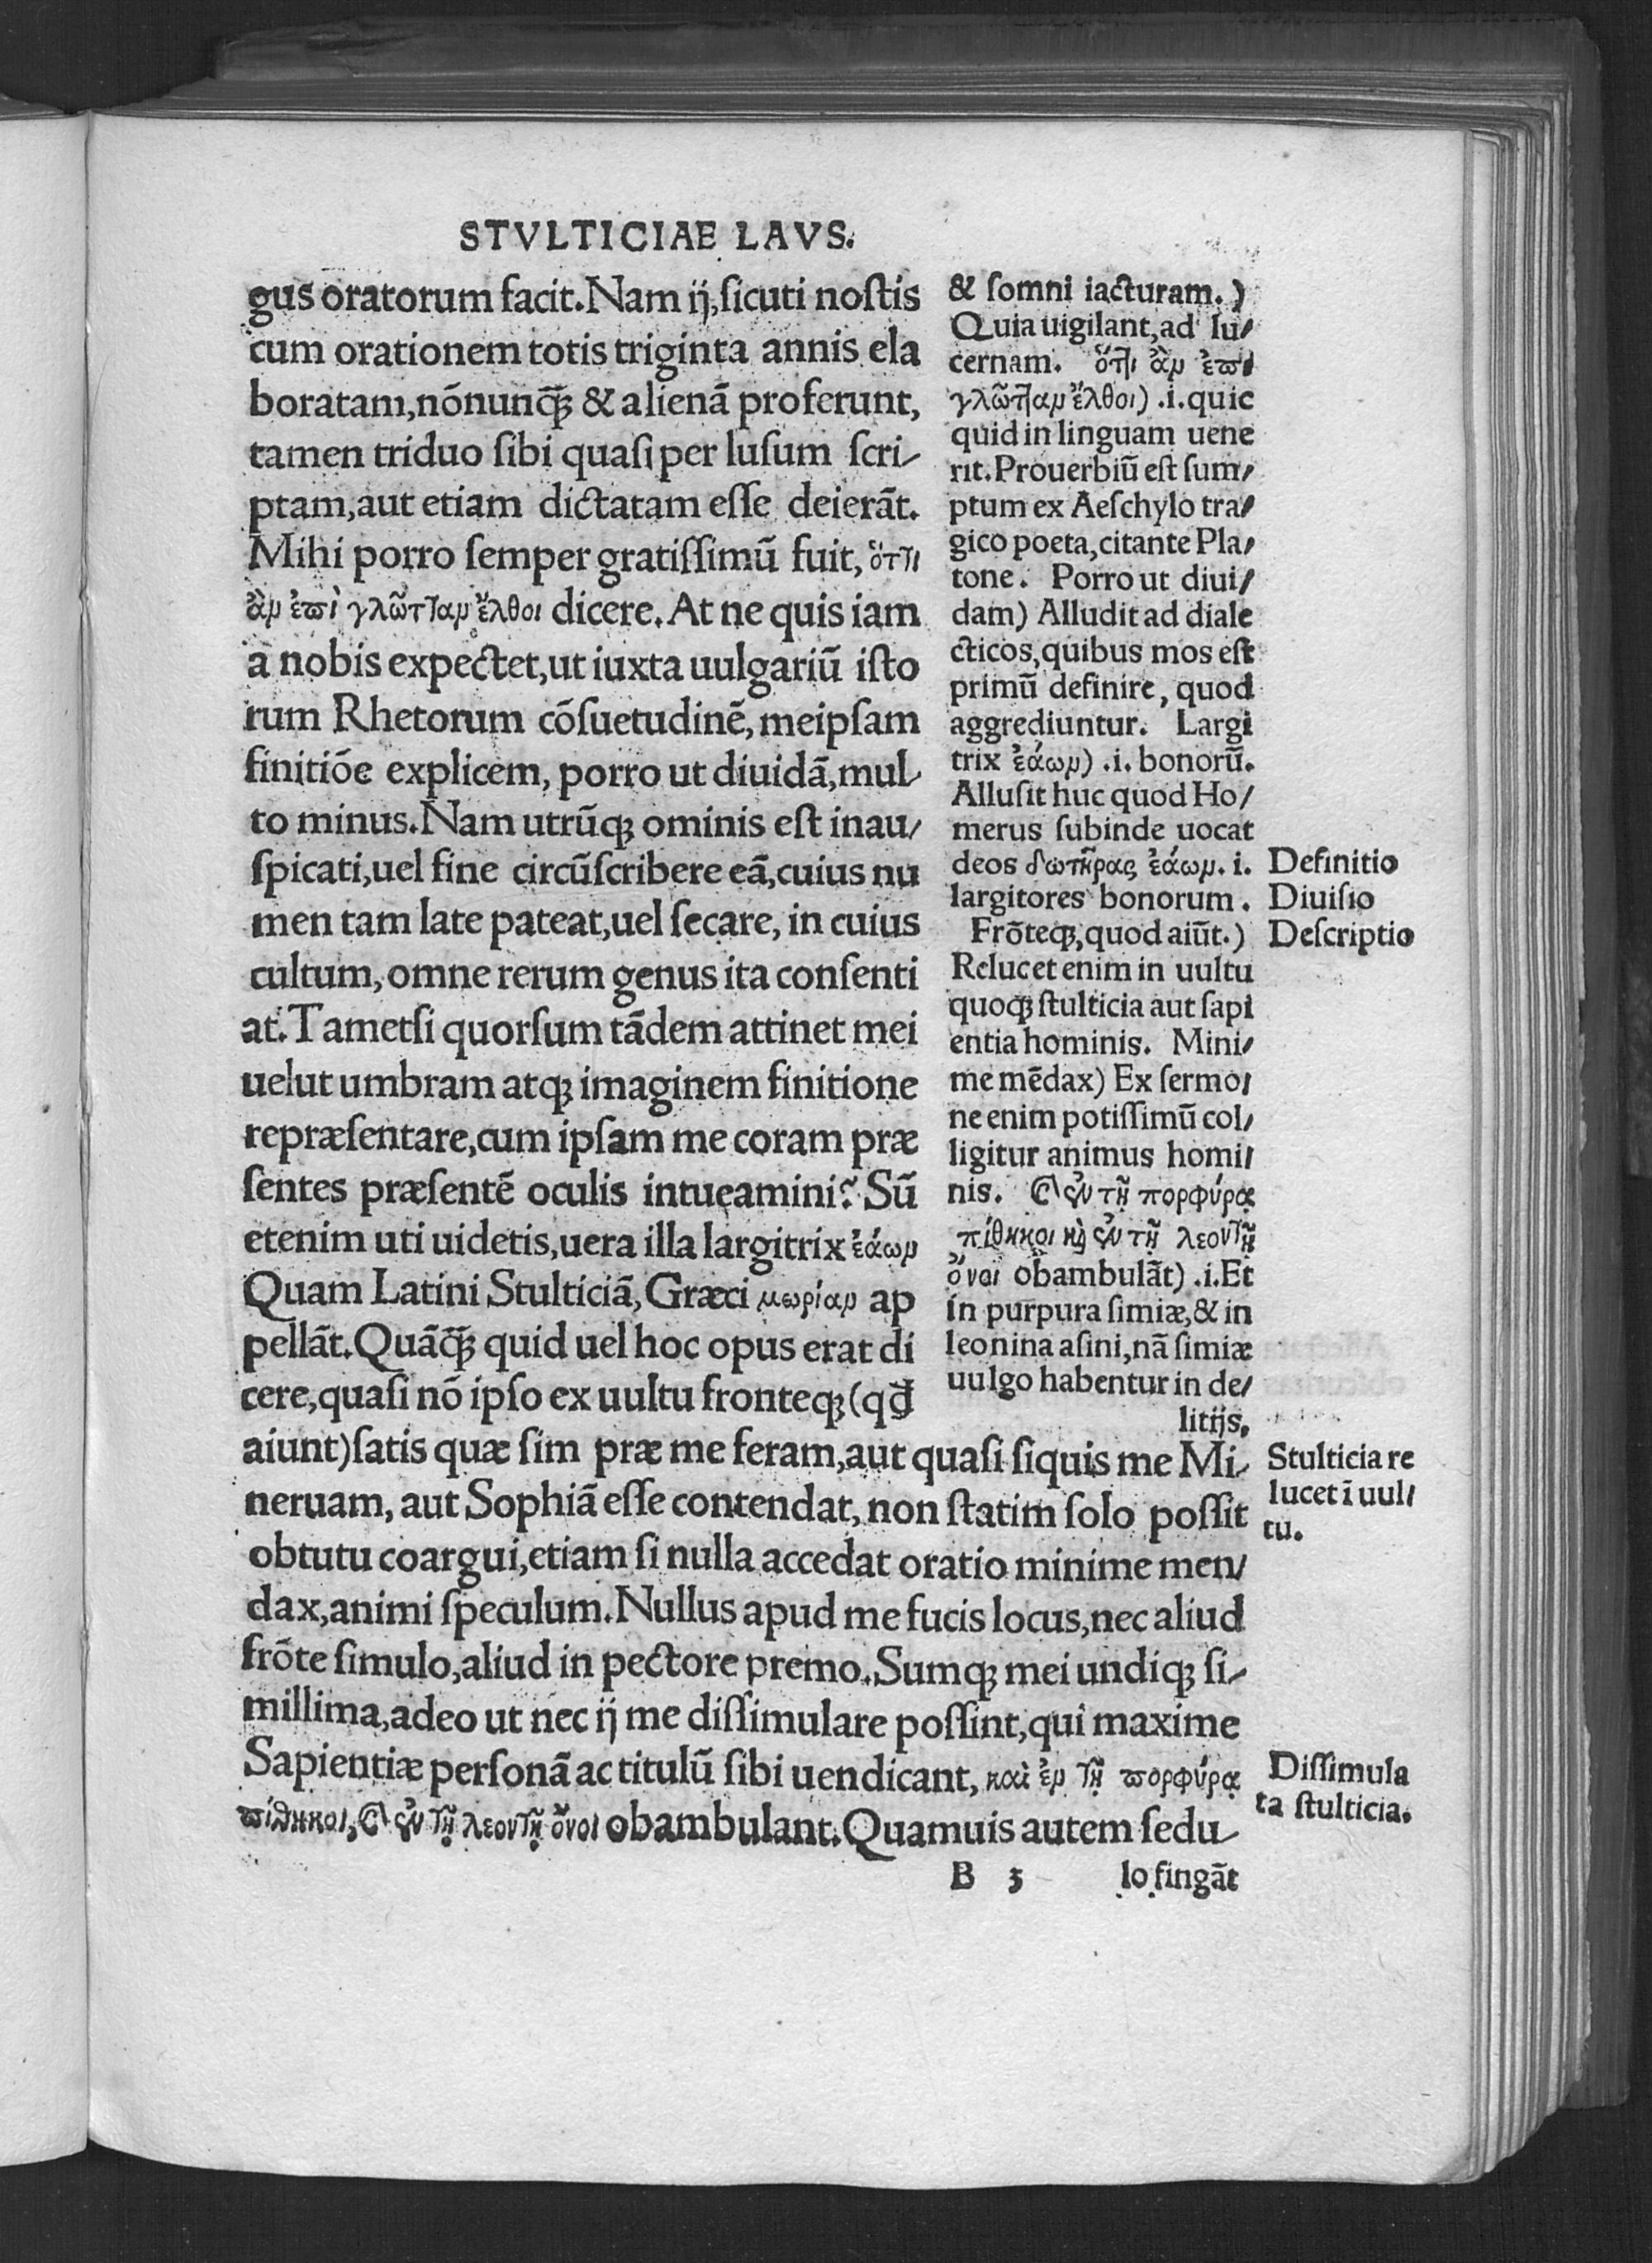 STVLTICIAE LAVS.
gus oratorum facit. Nam ij, ſicuti noſtis
cum orationem totis triginta annis ela
boratam, nōnunq̄ꝫ & alienā proferunt,
tamen triduo ſibi quaſi per luſum ſcri⸗
ptam, aut etiam dictatam eſſe deierāt.
Mihi porro ſemper gratiſſimū fuit, ὅτ]ι
ἂν ἐπὶ γλῶτ]αν ἔλθοι dicere. At ne quis iam
a nobis expectet, ut iuxta uulgariū iſto
rum Rhetorum cōſuetudinē, meipſam
finitiōe explicem, porro ut diuidā, mul⸗
to minus. Nam utrūqꝫ ominis eſt inau⸗
ſpicati, uel fine circūſcribere eā, cuius nu
men tam late pateat, uel ſecare, in cuius
cultum, omne rerum genus ita conſenti
at. Tametſi quorſum tādem attinet mei
uelut umbram atqꝫ imaginem finitione
repræſentare, cum ipſam me coram præ
ſentes præſentē oculis intueamini? Sū
etenim uti uidetis, uera illa largitrix ἐάων
Quam Latini Stulticiā, Græci μωρίαν ap
pellāt. Quāq̄ꝫ quid uel hoc opus erat di
cere, quaſi nō ipſo ex uultu fronteqꝫ (qd̄
aiunt) ſatis quæ ſim præ me feram, aut quaſi ſiquis me Mi⸗
neruam, aut Sophiā eſſe contendat, non ſtatim ſolo poſſit
obtutu coargui, etiam ſi nulla accedat oratio minime men⸗
dax, animi ſpeculum. Nullus apud me fucis locus, nec aliud
frōte ſimulo, aliud in pectore premo. Sumqꝫ mei undiqꝫ ſi⸗
millima, adeo ut nec ij me diſſimulare poſſint, qui maxime
Sapientiæ perſonā ac titulū ſibi uendicant, καὶ ἐν τῇ πορφύρᾳ
πίθηκοι, Cὶ ἐν τῇ λεοντῇ ὄνοι obambulant. Quamuis autem ſedu⸗
B 3 lo fingāt
& ſomni iacturam.)
Quia uigilant, ad lu⸗
cernam. ὅτ]ι ἂν ἐπι
γλῶτ]αν ἔλθοι) .i. quic
quid in linguam uene
rit. Prouerbiū eſt ſum⸗
ptum ex Aeſchylo tra⸗
gico poeta, citante Pla⸗
tone. Porro ut diui⸗
dam) Alludit ad diale
cticos, quibus mos eſt
primū definire, quod
aggrediuntur. Largi
trix ἐάων) .i. bonorū.
Alluſit huc quod Ho⸗
merus ſubinde uocat
deos δωτῆρας ἐάων. i.
largitores bonorum.
Frōteqꝫ, quod aiūt.)
Relucet enim in uultu
quoqꝫ ſtulticia aut ſapi
entia hominis. Mini⸗
me mēdax) Ex ſermo⸗
ne enim potiſſimū col⸗
ligitur animus homi⸗
nis. Cὶ ἐν τῇ πορφύρᾳ
πίθηκοι κỳ ἐν τῇ λεοντῇ
ὄνοι obambulāt) .i. Et
in purpura ſimiæ, & in
leonina aſini, nā ſimiæ
uulgo habentur in de⸗
litijs.
Definitio
Diuiſio
Deſcriptio
Stulticia re
lucet ī uul⸗
tu.
Diſſimula
ta ſtulticia.